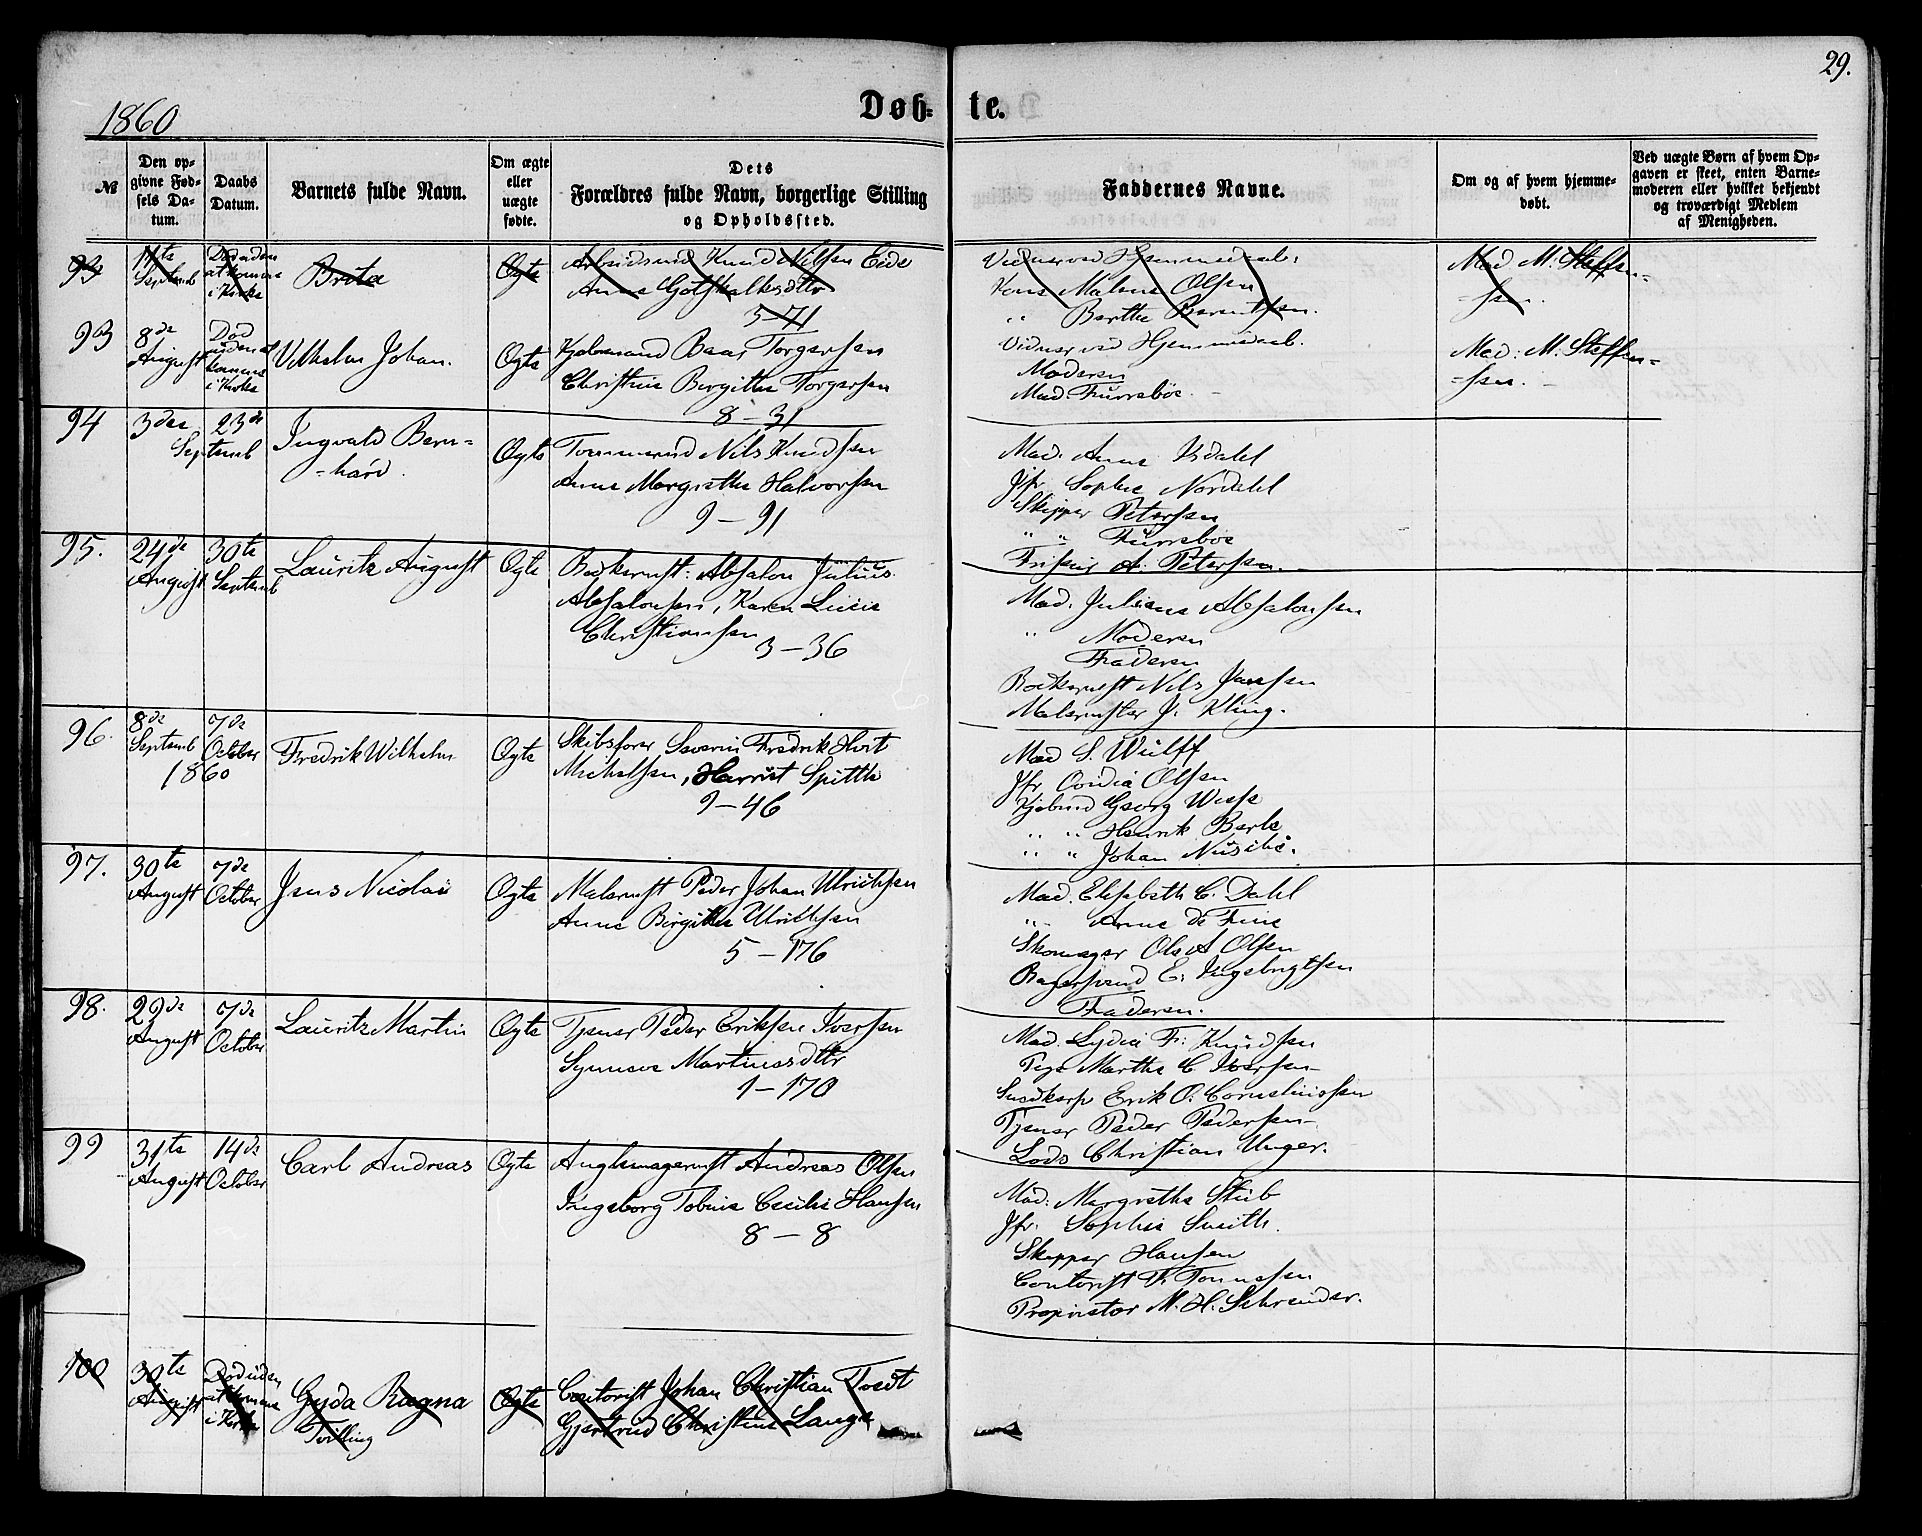 29.
1860
Døb-
te.
№
Den op-
givne Fød-
sels Da-
tum.
Daabs
Datum.
Barnets fulde Navn.
Om ægte
eller
uægte
fødte.
Dets
Forældres fulde Navn, borgerlige Stilling
og Opholdssted.
Faddernes Navne.
Om og af hvem hjemme-
døbt.
Ved uægte Børn af hvem Op-
gaven er skeet, enten Barne-
moderen eller hvilket bekjendt
og troværdigt Medlem
af Menigheden.
93
11te
Septemb
Død uden
at komme
i Kirke
Brita
Ægte
Arbeidsmd Knud Nilsen Eide
Anna Gotskalksdttr
3-71
Vidner ved Hjemmedaab:
Malene Olsen
" Berthe Berentsen.
Mad. M. Steffen-
-sen.
93
8de
August
Død
uden at
komme
i Kirke
Vilhelm Johan.
Ægte
Kjøbmand Baar Torgersen
Christine Birgitte Torgersen
8-31
Vidner ved Hjemmedaab.
Moderen
Mad. Furrebøe.
Mad: M. Steffen-
-sen.
94
3die
Septemb
23de
Ingvald Bern-
-hard.
Ægte
Tømmermd Nils Knudsen
Anne Margrethe Halvorsen
9-91
Mad. Anna Isdahl
Jfr Sophie Nordahl
Skipper Petersen
" " Furrebøe
A. Petersen.
95.
24de
August
30te
Septemb
Lauritz August
Ægte
Bødkermst: Absalon Julius
Absalonsen, Karen Lucie
Christiansen
3-36
Mad. Juliane Absalonsen
" Moderen
Faderen
Bødkermst Nils Jansen
Malermester J. Kling.
96.
8de
Septemb
1860
7de
October
Fredrik Wilhelm
Ægte
Skibsfører Severin Fredrik Hvit
Michelsen, Harriet Spittle
9-46
Mad S. Wulff
Jfr Cordia Olsen
Kjøbmd Georg Wiese
" " Henrik Berle
" " Johan
97.
30te
August
7de
October
Jens Nicolai
Ægte
Malermst Peder Johan Ulrichsen
Anne Birgitte Ulrichsen
5-176
Mad. Elisabeth C. Dahl
" Anne de Fine
Skomager Ole A Olsen
Bagersvend E. Ingebrigtsen
Faderen.
98.
29de
August
7de
October
Lauritz Martin
Ægte
Tjener Peder Eriksen Iversen
Synneve Martinusdttr
1-170
Mad. Lydia Fr. Knudsen
Pige Marthe C Iversen
Erik O. Corneliussen
Tjener Peder Pedersen
Lods Christian Unger.
99
31te
August
14de
October
Carl Andreas
Ægte
Andreas Olsen
Ingeborg Tobine Cecilie Hansen
8-8
Mad: Margrethe Stub
Jfr. Sophie Smith.
Skipper Hansen
Contorist Fr Tonnesen
Proprietær M. H. Schreuder.
100
30te
August
Død uden
at komme
i Kirke
Gyda Ragna
Tvilling
Ægte
Contorist Johan Christian Todt
Gjertrud Christine Lange